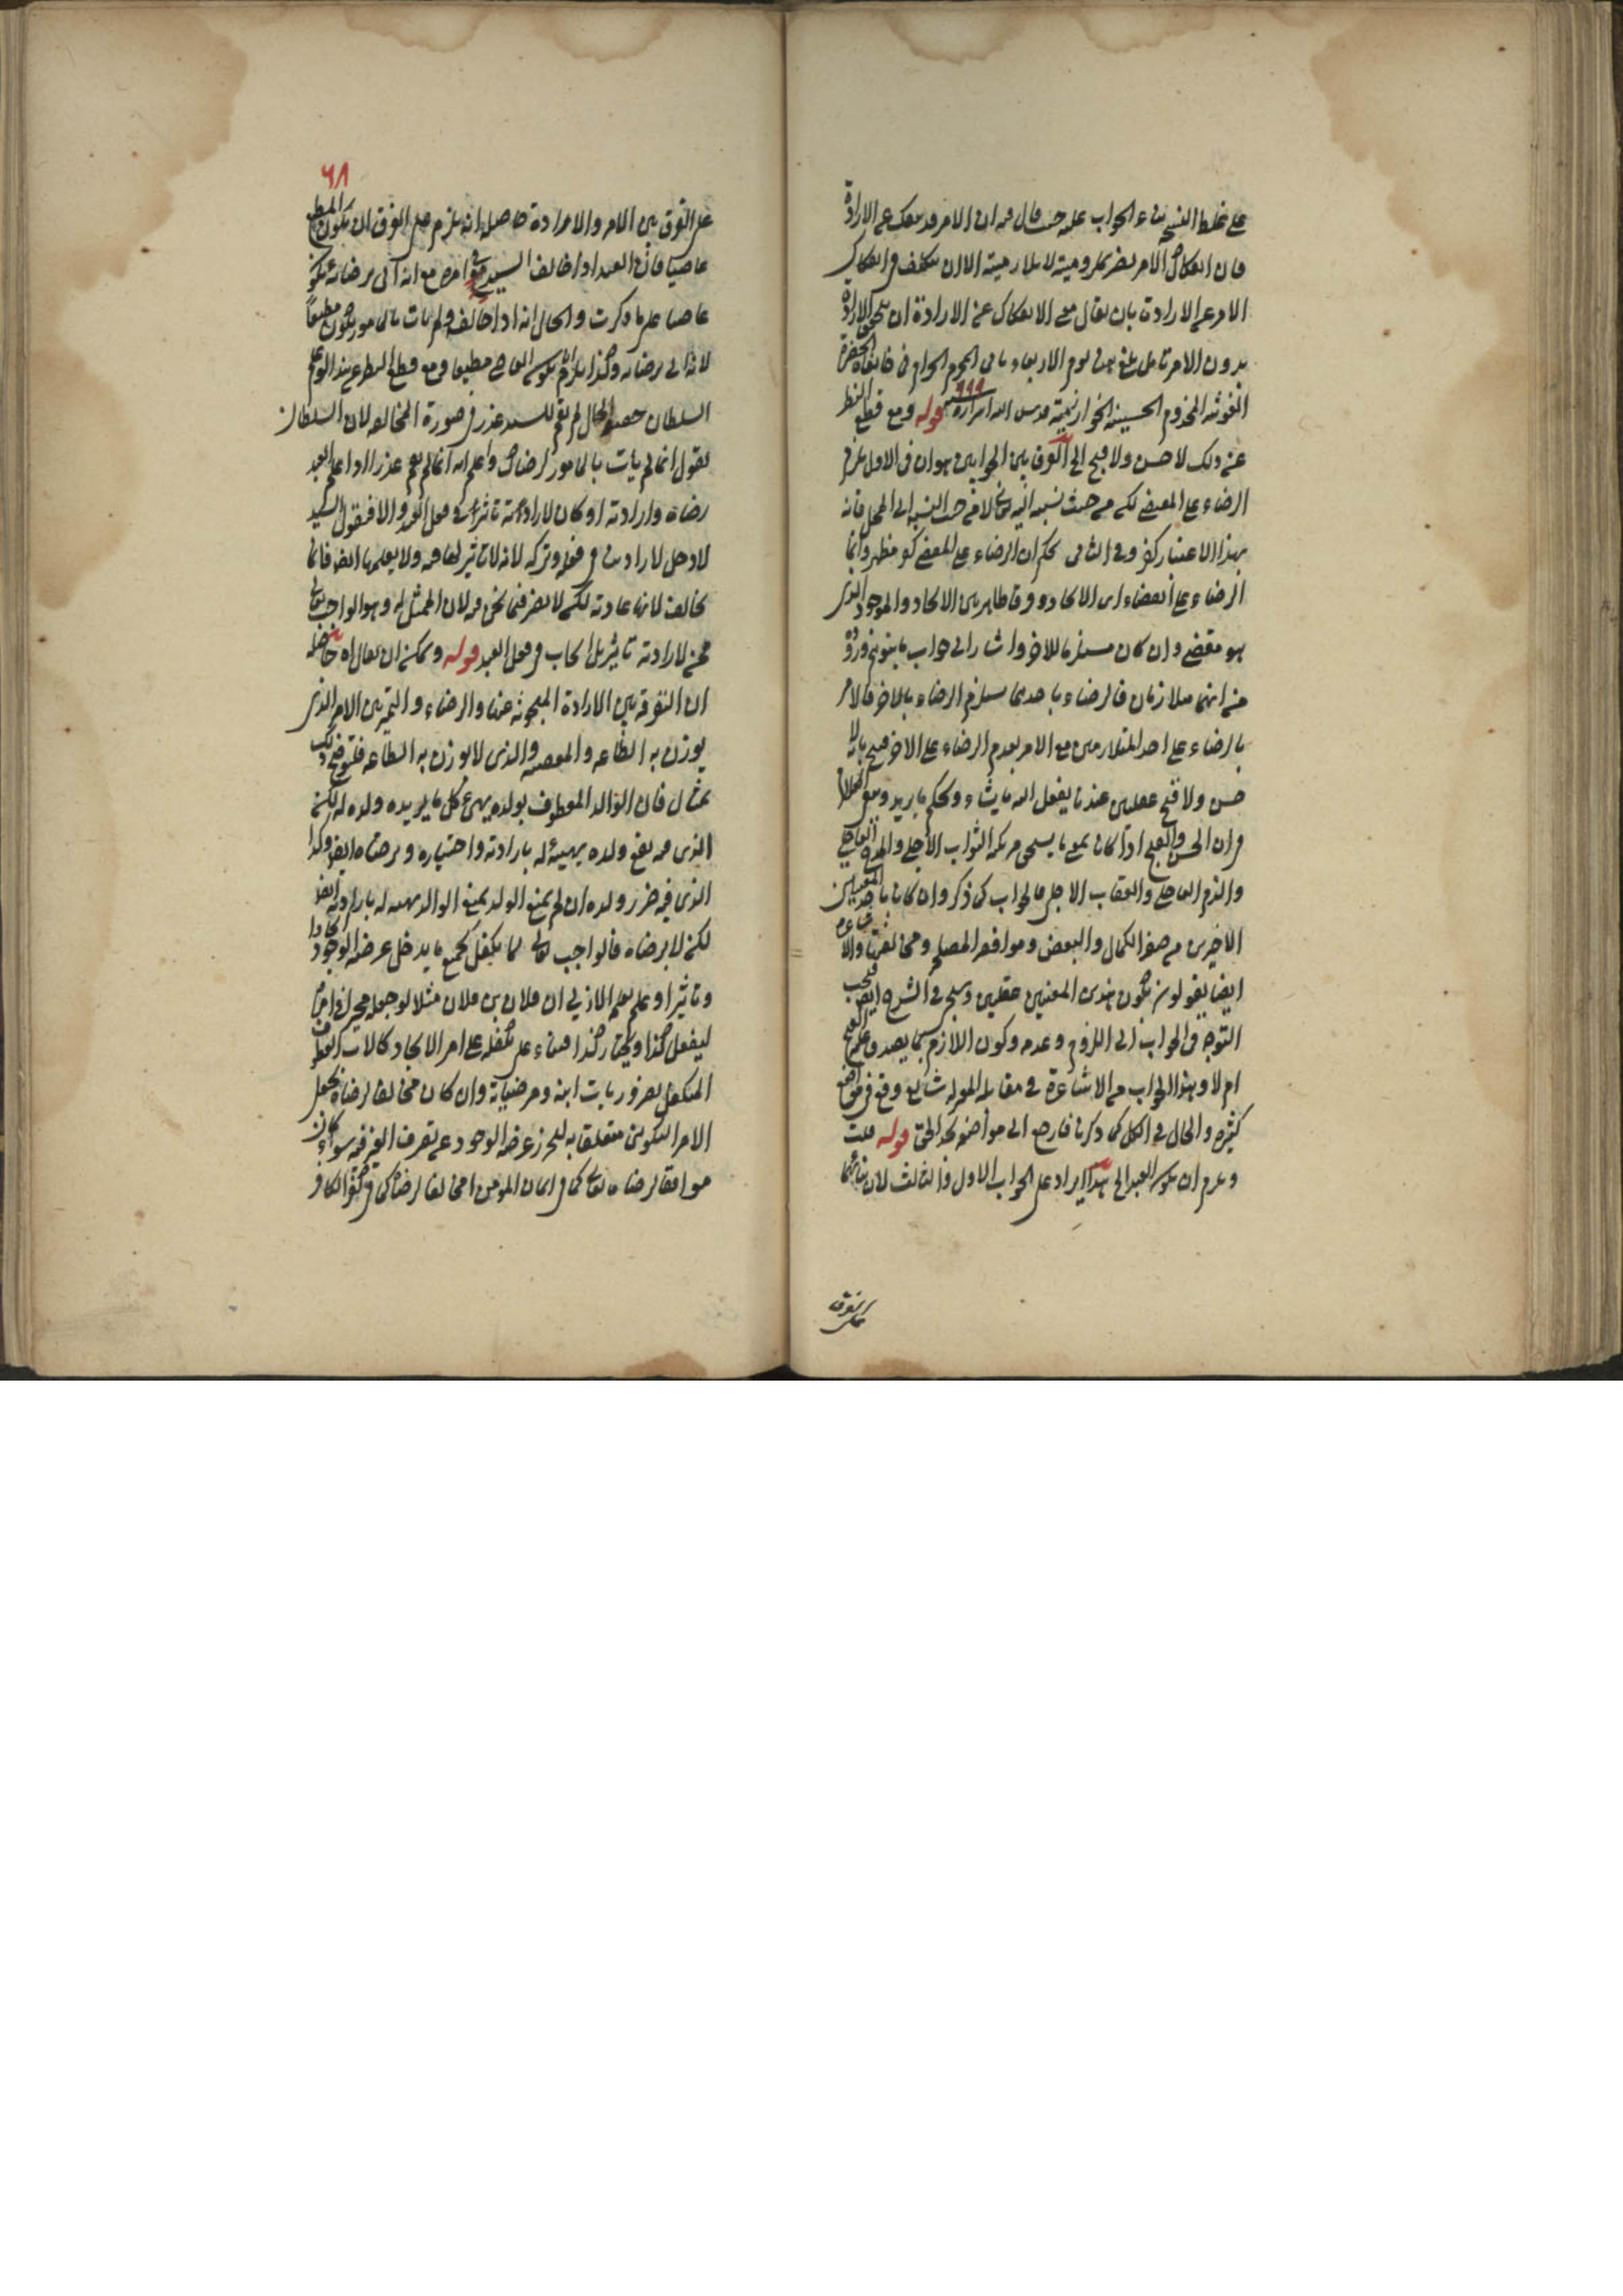 على غلط النسخ بناء الجواب عليه حيث قال فيه ان الامر قد ينفك عن الارادة
فان انفكاك الامر يضر بملزوميته لا بلازميته الا ان يتكلف في انفكاك
الامر عن الارادة بان يقال معنى الانفكاك عن الارادة ان يتحقق الارادة
بدون الامر تامل بلغ يوم الاربعاء المحرم الحرام في خانقاه الحضرة
الغوثية المخدوم الحسينية الخوارزمية قدس الله اسراره ٩٩٩ قوله ومع قطع النظر
عن ذلك لا حسن ولا قبح الخ الفرق بين الجوابين هو ان في الاول يلزم
الرضاء على المقضي لكن من حيث نسبته اليه تعالى لا من حيث النسبة الى المحل فانه
بهذا الاعتبار كفر وفي الثاني يحكم ان الرضاء على المقضي كفر مطلقا وانما
الرضاء على القضاء اي الايجاد وفرق ظاهر بين الايجاد والموجود الذي
هو مقضي وان كان مستلزما للاخر واشار الى جواب ما يتوهم وروده
من انهما متلازمان فالرضاء باحدهما يستلزم الرضاء بالاخر فالامر
بالرضاء على احد المتلازمين مع الامر بعدم الرضاء على الاخر قبيح بانه لا
حسن ولا قبح عقليين عندنا يفعل الله ما يشاء ويحكم ما يريد
في ان الحسن والقبح اذا كان بمعنى ما يستحق مرتكبه الثواب الآجل والمدح العاجل
والذم العاجل والعقاب الآجل فالجواب كما ذكر وان كانا باحد المعنيين
الاخيرين من صفة الكمال والنقص وموافقة المصلحة ومخالفتها والاشاعرة
ايضا يقولون بكون هذين المعنيين عقليين وسيجيء في الشرح ايضا فيجب
التوجه في الجواب الى اللزوم وعدمه وكون اللازم مما يصدق عليه القبح
ام لا وهذا الجواب من الاشاعرة في مقابلة المعتزلة شايع وقع في مواضع
كثيرة والحال في الكل كما ذكرنا فارجع الى مواضعه تجد الحق قوله قلت
ويلزم ان يكون العبد الخ هذا ايراد على الجواب الاول والثالث لان بنائهما
على الفرق
٦٨
على الفرق بين الامر والارادة حاصله انه يلزم على الفرق ان يكون المطيع
عاصيا فان العبد اذا خالف السيد في امره مع انه اتى برضائه يكون
عاصيا على ما ذكرت والحال انه اذا خالفه ولم يات بالمامور يكون مطيعا
لانه اتى برضائه وكذا يلزم ان يكون العاصي مطيعا ومع قطع النظر عن هذا لو علم
السلطان حقيقة الحال لم يقم للسيد عذر في صورة المخالفة لان السلطان
يقول انما لم يات بالمامور لرضاك واعلم انه انما لم يقم عذر اذا علم العبد
رضاه وارادته او كان لارادته تاثير في فعل العبد والا فيقول السيد
لا دخل لارادتي في فعله وتركه لانه لا تاثير لها فيه ولا يعلمها ايضا فانما
يخالف لانها عادته لكن لا يضر فيما نحن فيه لان الممثل له وهو الواجب تعالى
فمن لارادته تاثير بل ايجاب في فعل العبد قوله ويمكن ان يقال اه حاصله
ان التفرقة بين الارادة المبحوثة عنها والرضاء والتمييز بين الامر الذي
يوزن به الطاعة والمعصية والذي لا يوزن به الطاعة فتوضح ذلك
بمثال فان الوالد المعطوف بولده يهيء كل ما يريده ولده له لكن
الذي فيه نفع ولده يهيئه له بارادته واختياره وبرضاه ايضا وكذا
الذي فيه ضرر ولده ان لم يمنع الولد يمنع الوالد يهيئه له بارادته ايضا
لكن لا برضاه فالواجب تعالى لما يتكفل لجميع ما يدخل عرضة الوجود ايجادا
وتاثيرا وعلم بعلمه الازلي ان فلان بن فلان مثلا لو جعل مخيرا في امره
ليفعل كذا ويختار كذا فبناء على تكفله على امر الايجاد كالاب العطوف
المتكفل بضروريات ابنه ومرضياته وان كان مخالفا لرضاه يجعل
الامر التكويني متعلقا به ليحرز عرضة الوجود عن تصرف الغير فيه سواء كان
موافقا لرضاه تعالى كما في ايمان المؤمن او مخالفا لرضاه كما في كفر الكافر